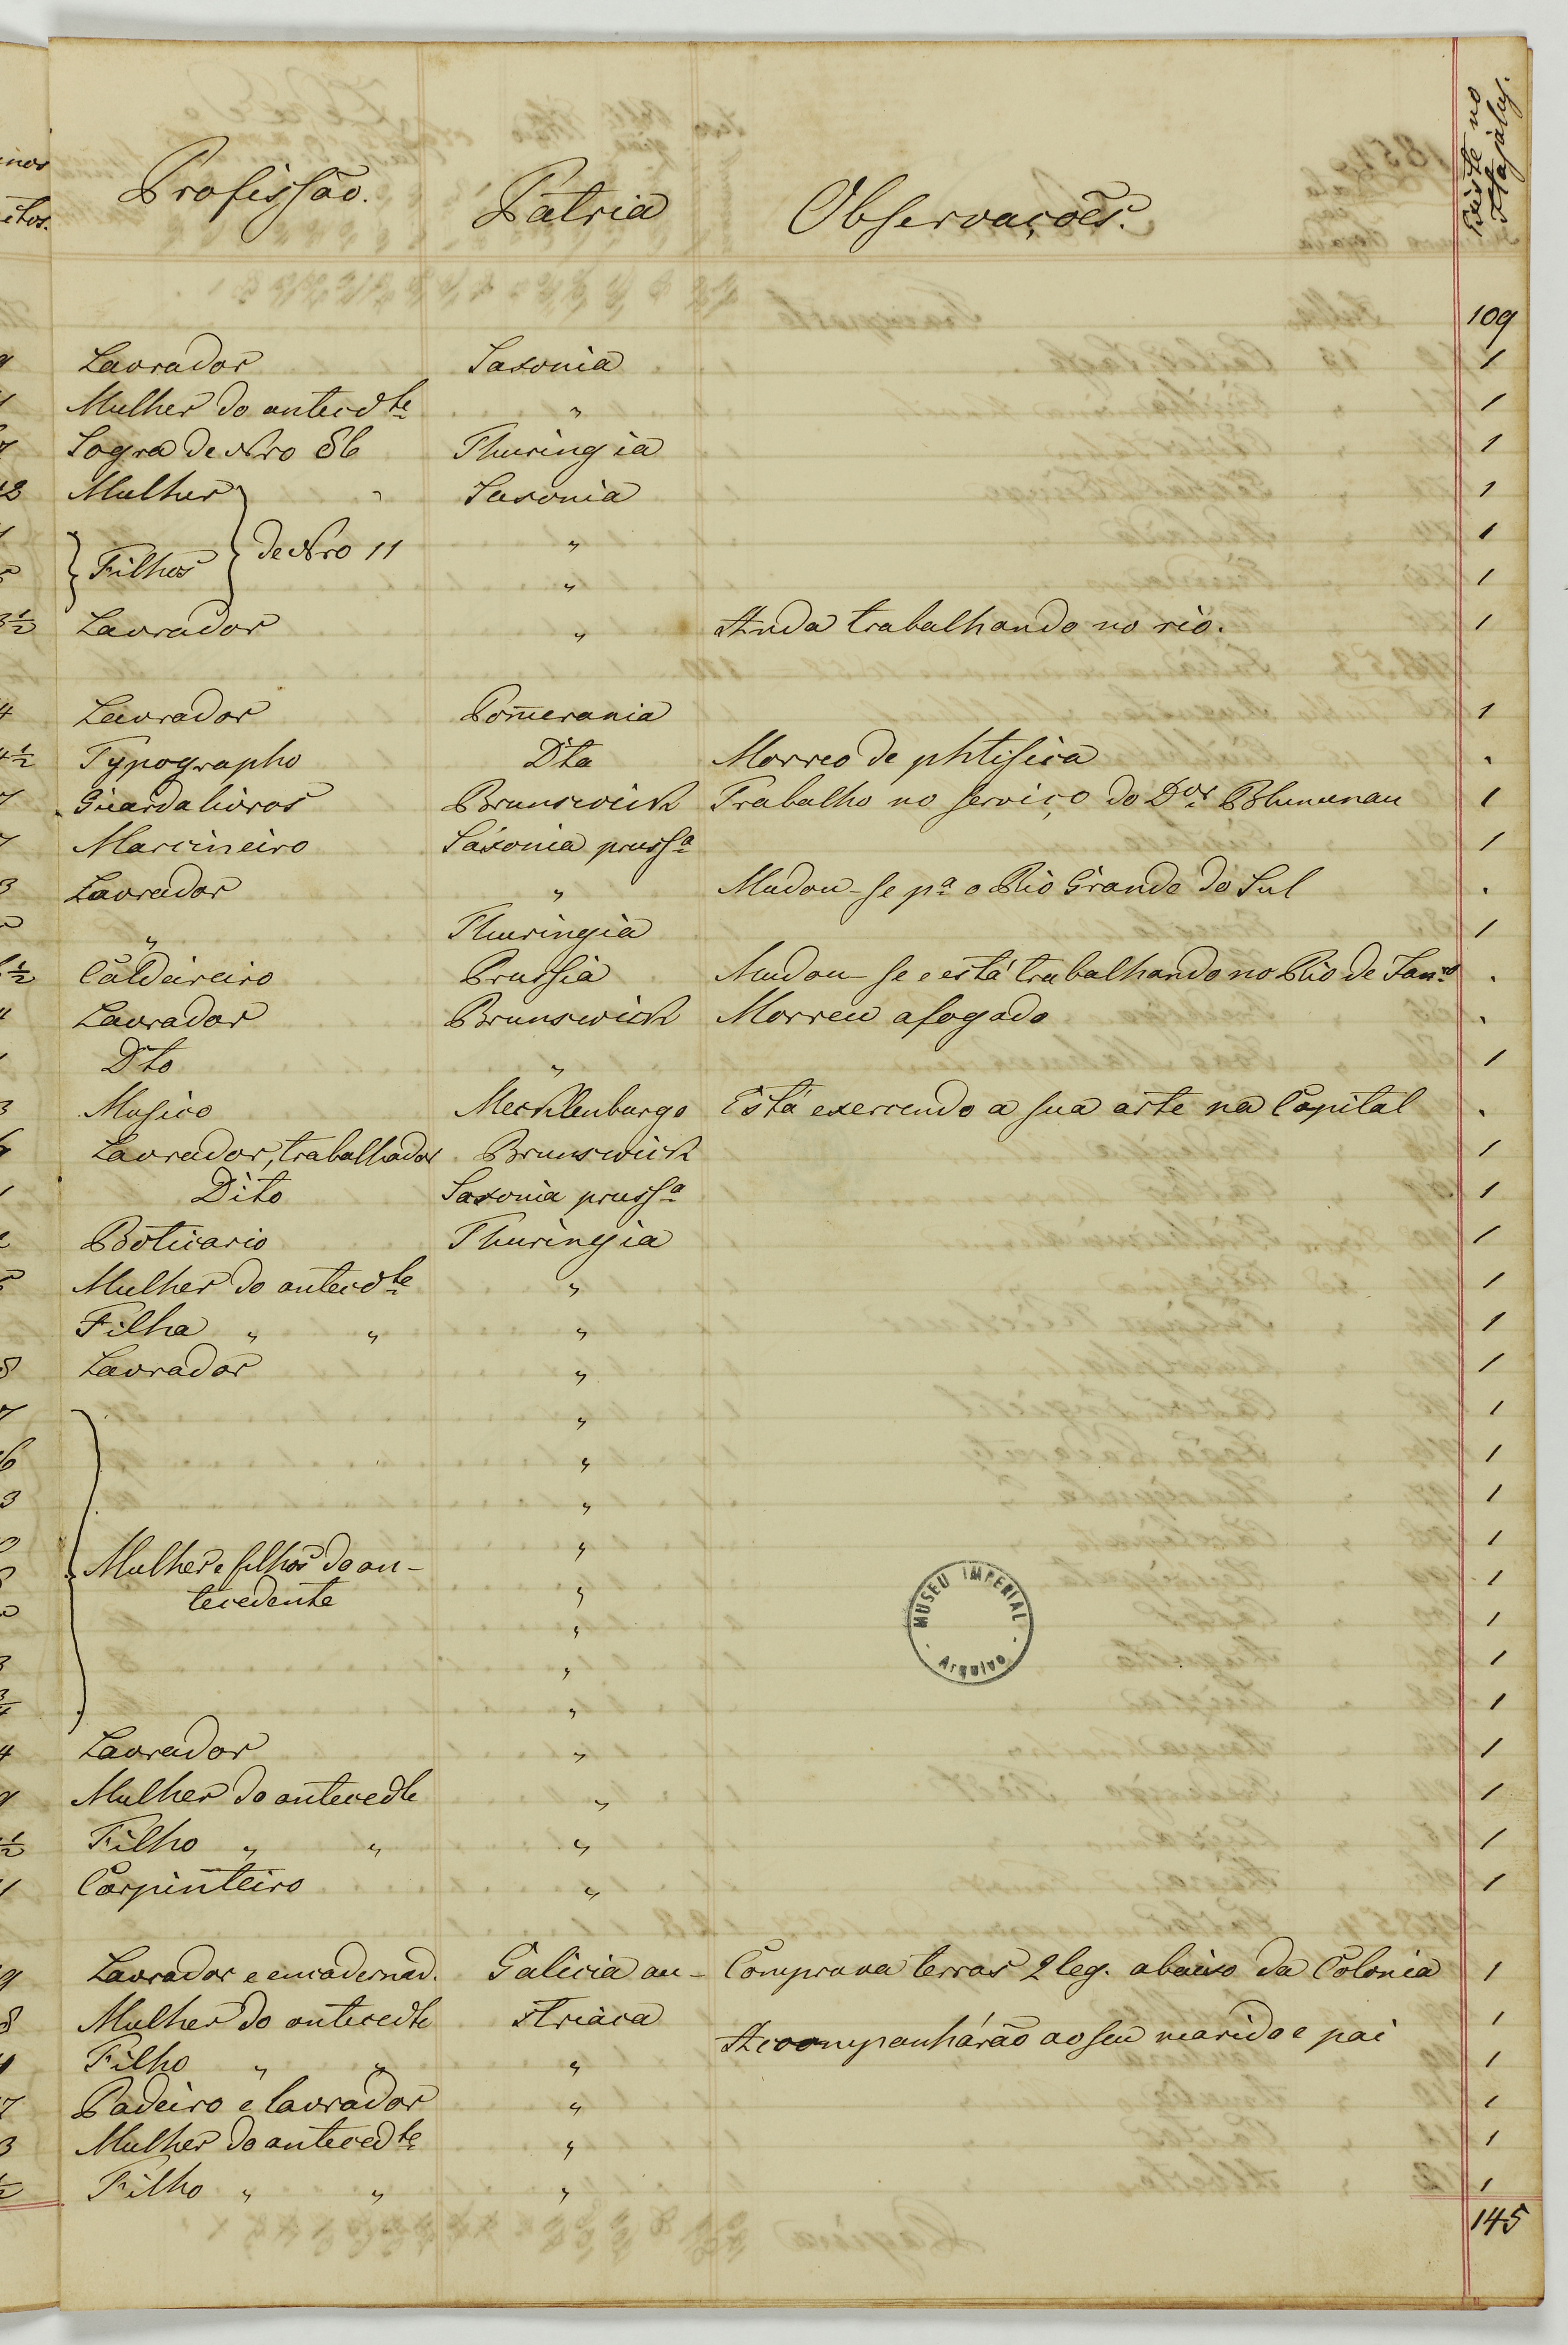 nos
itos.
Profissão. Pátria Observações. Existe no Itajahy.
109
Lavrador Saxonia 1
Mulher do antecdte " 1
Sogra de Nro 86 Thuringia 1
Mulher " Saxonia 1
de Nro 11 " 1
Filhos " 1
Lavrador " Anda trabalhando no rio. 1
Lavrador Pom̄erania 1
Typographo Dta Morreo de phtisica .
Guardalivros Brunswick Trabalha no serviço do Dor Blumenau 1
Marcineiro Saxonia prussa 1
Lavrador " Mudou-se pa o Rio Grande do Sul .
" Thuringia 1
Caldeireiro Prussia Mudou-se e está trabalhando no Rio de Janro .
Lavrador Brunswick Morreu afogado .
Dto " 1
Musico Mecklenburgo Está exercendo a sua arte na Capital .
Lavrador, trabalhador Brunswick 1
Dito Saxonia prussa 1
Boticario Thuringia 1
Mulher do antecdte " 1
Filha " " " 1
Lavrador " 1
" 1
" 1
" 1
" 1
Mulher e filhos do an-
tecedente " 1
" 1
" 1
" 1
Lavrador " 1
Mulher do antecedte " 1
Filho " " " 1
Carpinteiro " 1
Lavrador e encadernad. Galicia au- Comprava terras 2 leg. abaixo da Colonia 1
Mulher do antecedte striaca 1
Acompanhárão ao seu marido e pai
Filho " " " 1
Padeiro e lavrador " 1
Mulher do antecedte " 1
Filho " " " 1
145
MUSEU IMPERIAL
Arquivo